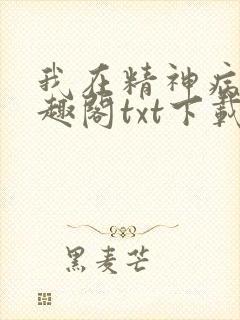 我在精神病
趣阁txt下载
黑麦芒